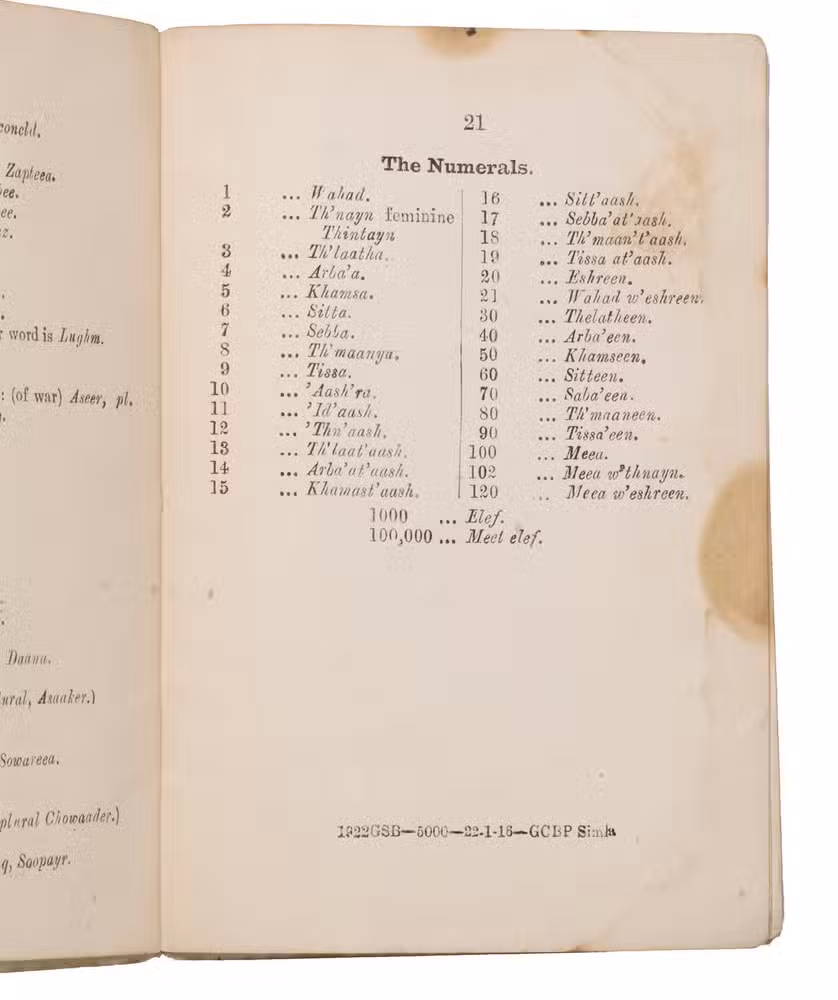 coneld.
Zapteea.
ee.
ee.
z.
r word is Lughm.
: (of war) Aseer, pl.
Daana.
ural, Asaaker.)
Sowareea.
plural Chowaader.)
q, Soopayr.
21
The Numerals.
1 ... Wahad.
2 ... Th'nayn feminine
Thintayn
3 ... Th'laatha.
4 ... Arba'a.
5 ... Khamsa.
6 ... Sitta.
7 ... Sebba.
8 ... Th'maanya.
9 ... Tissa.
10 ... 'Aash'ra.
11 ... 'Id'aash.
12 ... 'Thn'aash.
13 ... Th'laat'aash.
14 ... Arba'at'aash.
15 ... Khamast'aash.
16 ... Sitt'aash.
17 ... Sebba'at'aash.
18 ... Th'maan't'aash.
19 ... Tissa at'aash.
20 ... Eshreen.
21 ... Wahad w'eshreen.
30 ... Thelatheen.
40 ... Arba'een.
50 ... Khamseen.
60 ... Sitteen.
70 ... Saba'een.
80 ... Th'maaneen.
90 ... Tissa'een.
100 ... Meea.
102 ... Meea w'thnayn.
120 .. Meea w'eshreen.
1000 ... Elef.
100,000 ... Meet elef.
1922GSB—5000—22-1-16—GCBP Simla